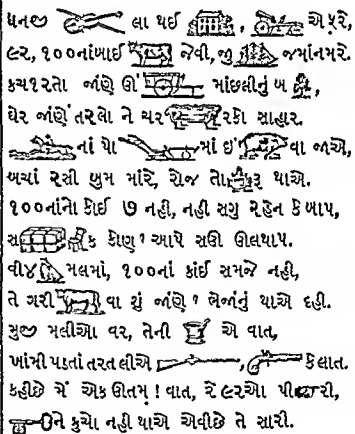 ધનજી લા થઈ , એ પરે,
૯૨, ૧૦૦નાંબાઈ જેવી, જી જમાંનમરે.
કચ૧૨તો જાંણે ઊં માંછલીનું બ ,
ઘેર જાંણે તરલા ને ચર રકો સાહાર.
નાં પો માં ઇં વા જાએ,
બચાં ૨સી બુમ માંરે, રોજ તો રૂ થાએ.
૧૦૦નાંનો કોઈ ૭ નહી, નહી સગુ ૨હેન કે બાપ,
સ ક કોણ? આપે સઊ ઊલથાપ.
વી૪ મલમાં, ૧૦૦નાં કાંઈ સમજે નહી,
તે ગરી વા શું જાંણે? ભેજાંનું થાએ દહી.
મુજી મલીઆ વર, તેની એ વાત,
ખાંમી પડતાં તરત લીએ , કે લાત.
કહીછે મેં એક ઊતમ! વાત, રે ૯૨આ પી રી,
ને કુચો નહી થાએ એવીછે તે સારી.